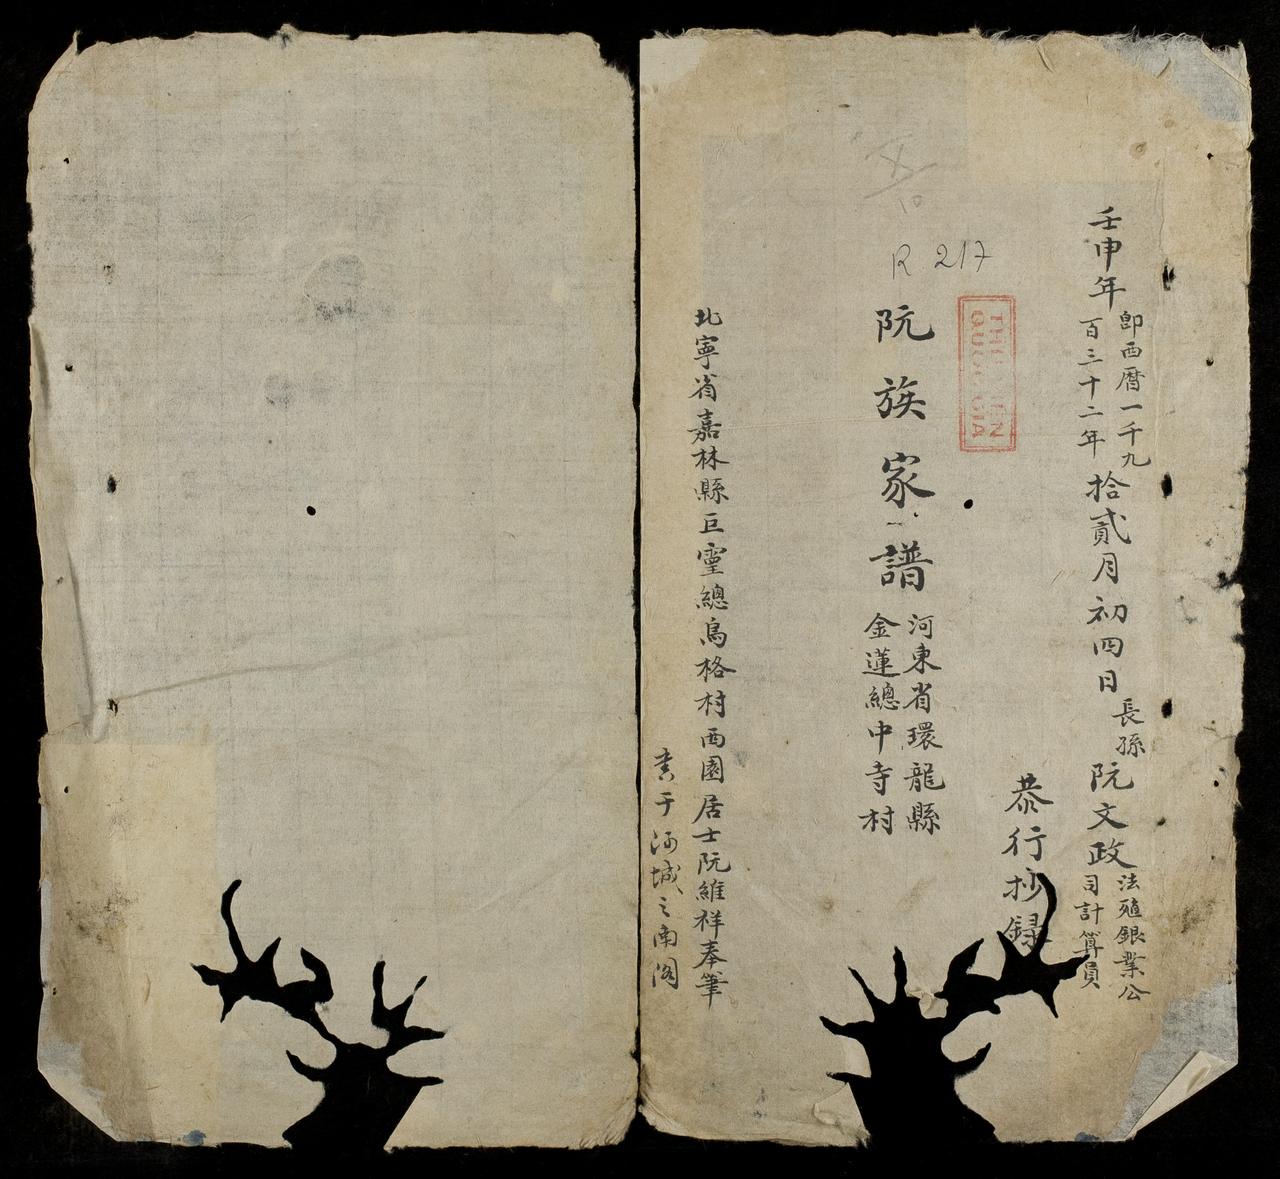 壬申年
卽西曆一千九
百三十二年
拾貳月初四日
長孫
阮文政
法殖銀業公
司計算員
恭行抄録
R 217
阮族家譜
河東省環龍縣
金蓮總中寺村
北寧省嘉林縣巨靈總烏格村西園居士阮維祥奉筆
書于河城之南閣